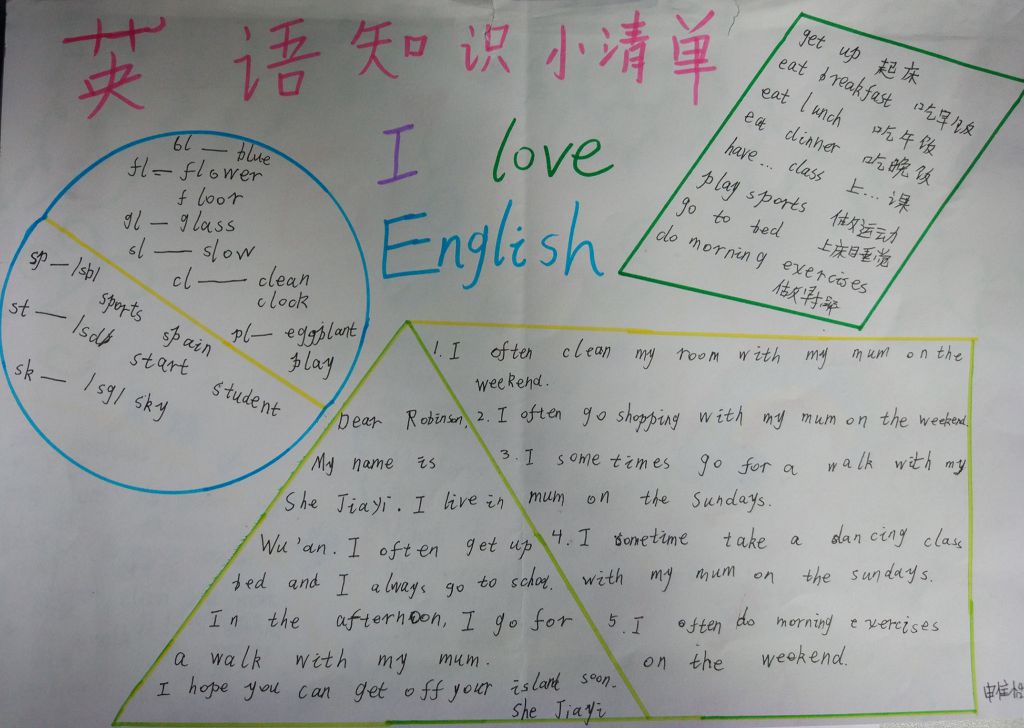 英语知识小清单
I love
English
get up 起床
eat breakfast 吃早饭
eat lunch 吃午饭
eat dinner 吃晚饭
have... class 上...课
play sports 做运动
go to bed 上床睡觉
do morning exercises
做早操
bl — blue
fl — flower
floor
gl — glass
sl — slow
cl — clean
clock
pl — eggplant
play
sp — /sb/
sports
spain
st — /sd/
start
student
sk — /sg/ sky
Dear Robinson,
My name is
She Jiayi. I live in
Wu'an. I often get up
bed and I always go to school.
In the afternoon, I go for
a walk with my mum.
I hope you can get off your island soon.
She Jiayi
1. I often clean my room with my mum on the
weekend.
2. I often go shopping with my mum on the weekend.
3. I some times go for a walk with my
mum on the Sundays.
4. I sometime take a dancing class
with my mum on the sundays.
5. I often do morning exercises
on the weekend.